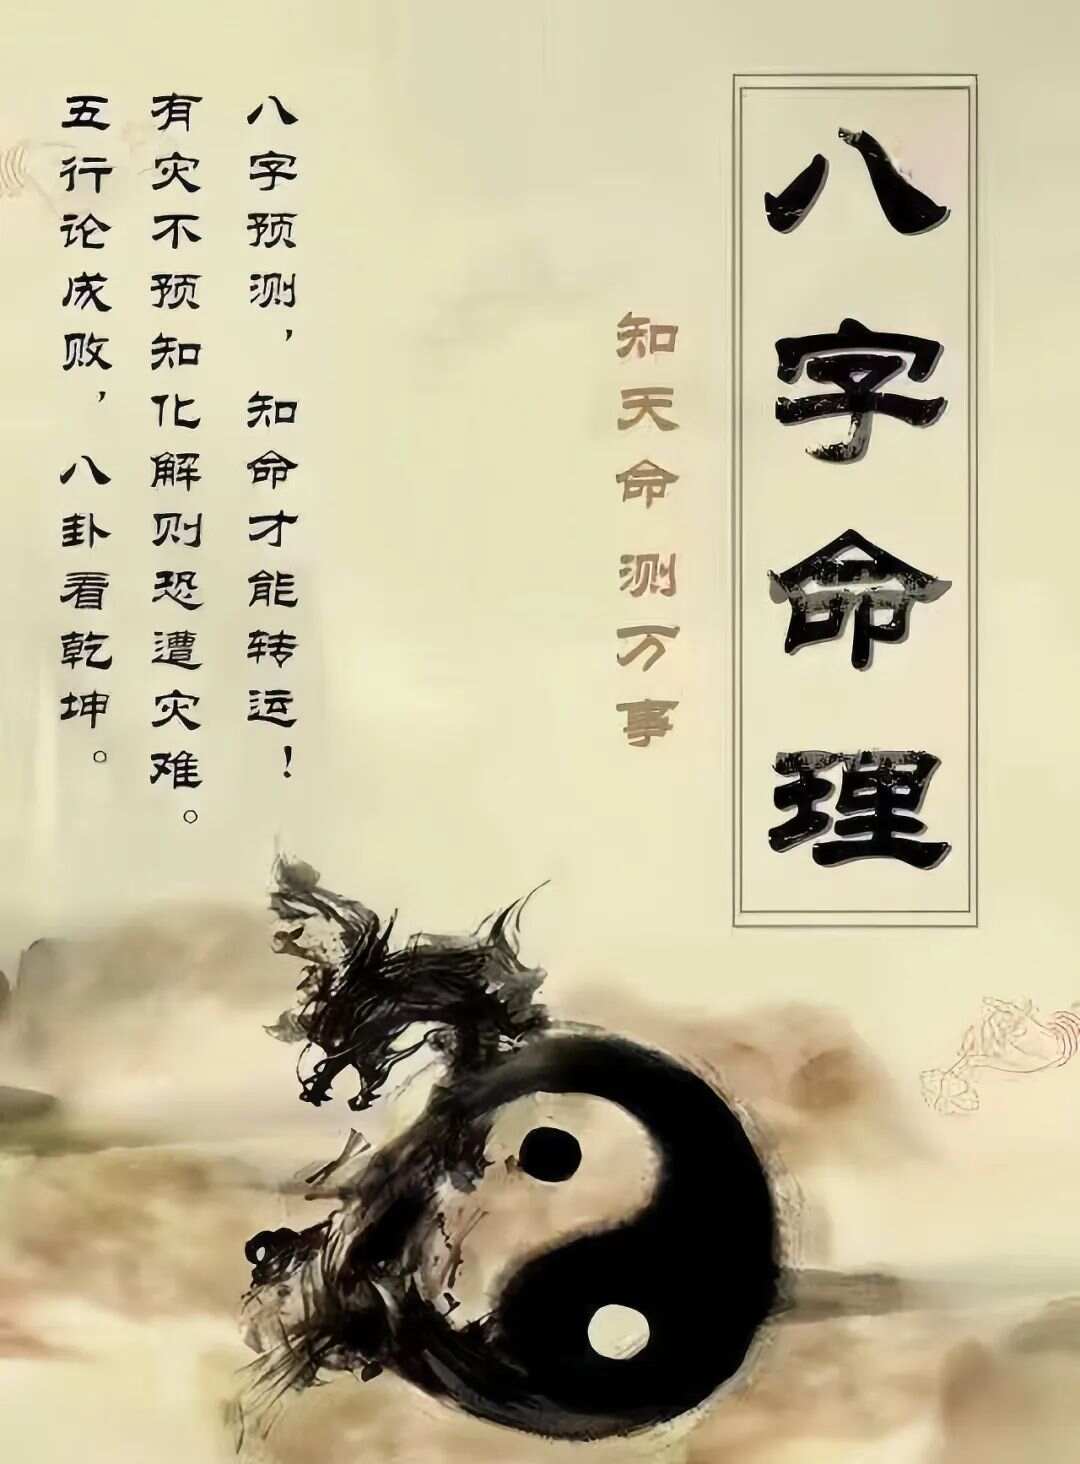 八字命理
知天命 测万事
八字预测，知命才能转运！
有灾不预知化解则恐遭灾难。
五行论成败，八卦看乾坤。